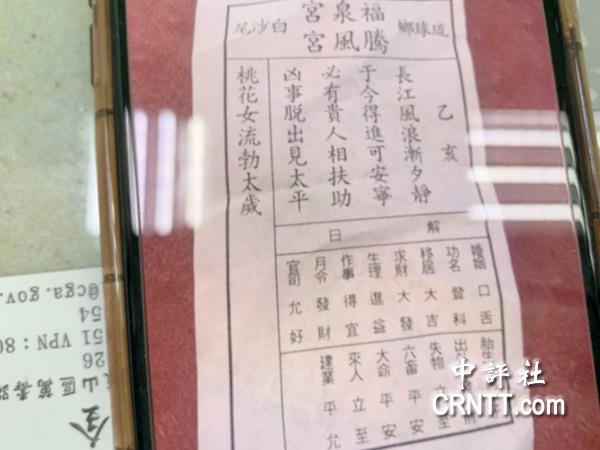 琉球鄉
福泉宮
騰風宮
白沙尾
乙亥
長江風浪漸夕靜
于今得進可安寧
必有貴人相扶助
凶事脫出見太平
桃花女流勃太歲
解日
婚姻 口舌
功名 登科
移居 大吉
求財 大發
生理 進益
作事 得宜
月令 發財
官司 允好
胎生
出
失物 立至
六畜 平安
大命 平安
來人 立至
建業 平允
山區萬壽路
26
51 VPN：80
54
@cga.gov.
中評社
CRNTT.com